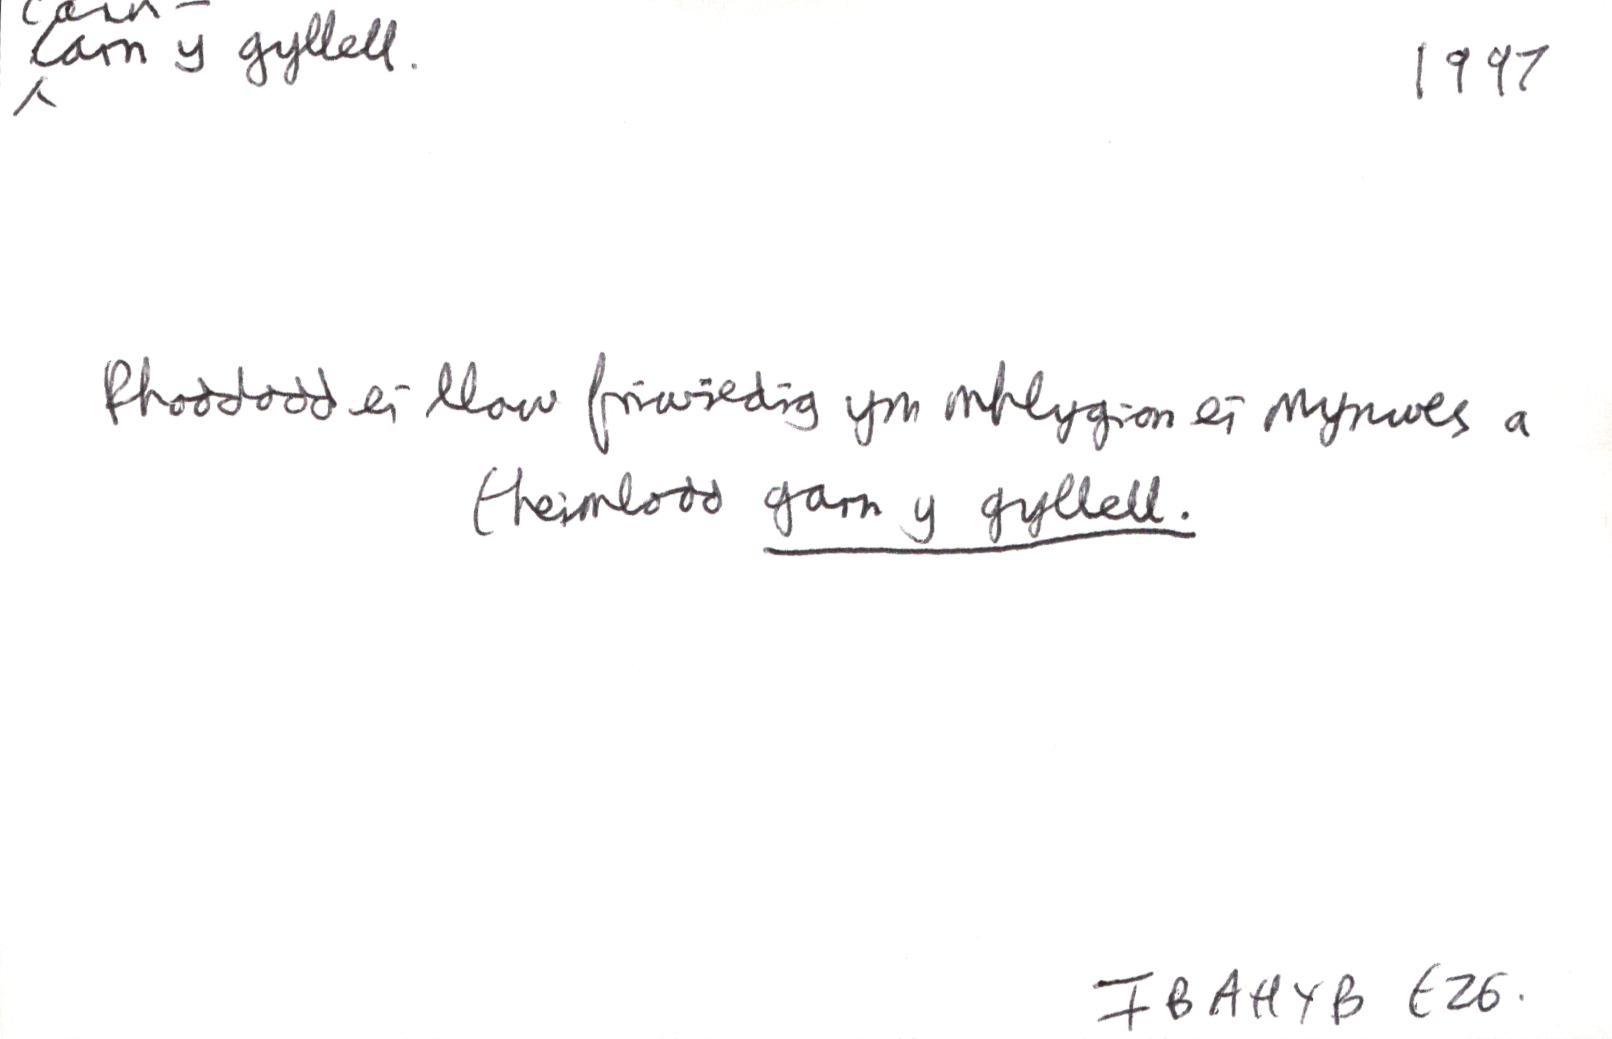 carn -
Carn y gyllell.
1997
Rhoddodd ei llaw friwiedig ym mhlygion ei mynwes a
theimlodd garn y gyllell.
IBAHYB t26.